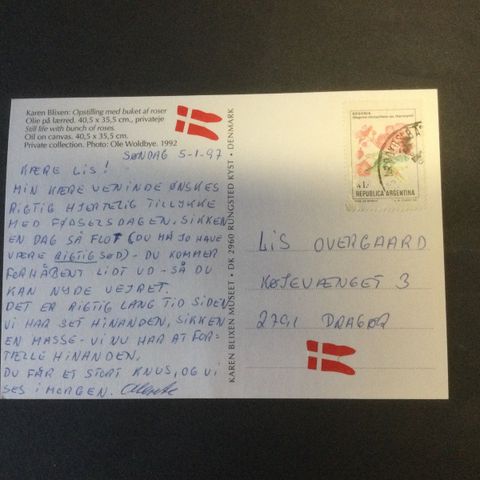 Karen Blixen: Opstilling med buket af roser
Olie på lærred. 40,5 x 35,5 cm., privateje
Still life with bunch of roses.
Oil on canvas. 40,5 x 35,5 cm.
Private collection. Photo: Ole Woldbye. 1992
SØNDAG 5-1-97
KÆRE LIS!
MIN KÆRE VENINDE ØNSKES
RIGTIG HJERTELIG TILLYKKE
MED FØDSELSDAGEN, SIKKEN
EN DAG SÅ FLOT (DU MÅ JO HAVE
VÆRE RIGTIG SØD) - DU KOMMER
FORHÅBENT LIDT UD - SÅ DU
KAN NYDE VEJRET.
DET ER RIGTIG LANG TID SIDEN
VI HAR SET HINANDEN, SIKKEN
EN MASSE - VI NU HAR AT FOR-
TELLE HINANDEN.
DU FÅR ET STORT KNUS, OG VI
SES I MORGEN.
KAREN BLIXEN MUSEET • DK 2960 RUNGSTED KYST • DENMARK
BEGONIA
REPUBLICA ARGENTINA
LIS OVERGAARD
2791 DRAGØR